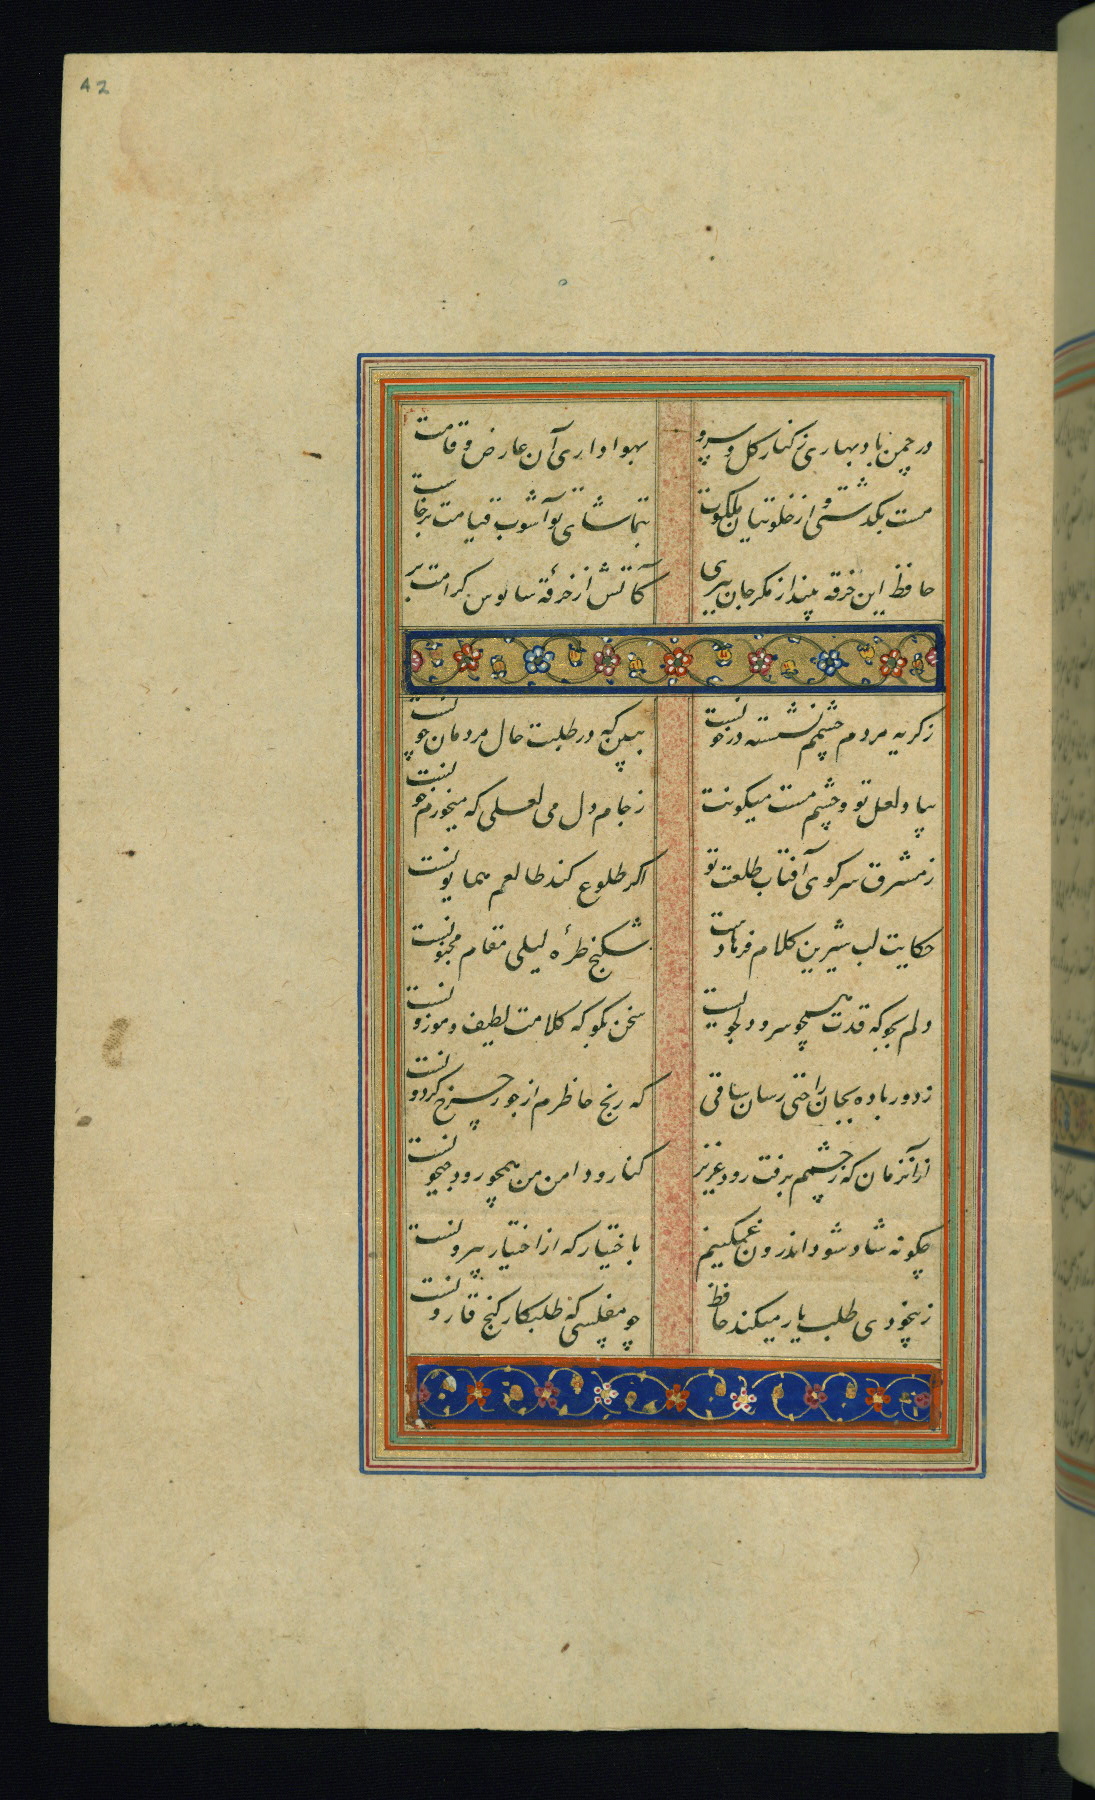 42
در چمن باد بهاری ز کنار گل و سرو
بهواداری آن عارض و قامت
مست بگذشتی و از خلوتیان ملکوت
بتماشای تو آشوب قیامت برخاست
حافظ این خرقه بینداز مگر جان ببری
کاتش از خرقهٔ سالوس کرامت بر
ز گریه مردم چشمم نشسته در خونست
ببین که در طلبت حال مردمان چونست
بیاد لعل تو و چشم مست میگونت
ز جام دل می لعلی که میخورم خونست
ز مشرق سر کوی آفتاب طلعت تو
اگر طلوع کند طالعم همایونست
حکایت لب شیرین کلام فرهادست
شکنج طرهٔ لیلی مقام مجنونست
دلم بجو که قدت همچو سرو دلجویست
سخن بگو که کلامت لطیف و موزونست
ز دور باده بجان راحتی رسان ساقی
که رنج خاطرم از جور چرخ گردونست
از آنزمان که ز چشمم برفت رود عزیز
کنار رود دامن من همچو رود جیحونست
چگونه شاد شود اندرون غمگینم
باختیار که از اختیار بیرونست
ز بیخودی طلب یار میکند حافظ
چو مفلسی که طلبکار گنج قارونست